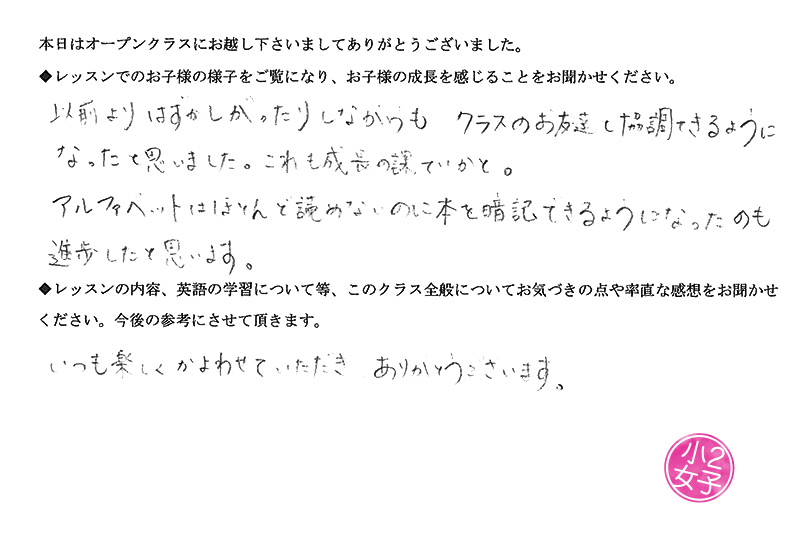 本日はオープンクラスにお越し下さいましてありがとうございました。
◆レッスンでのお子様の様子をご覧になり、お子様の成長を感じることをお聞かせください。
以前よりはずかしがったりしながらも クラスのお友達と協調できるように
なったと思いました。これも成長の証でいかと。
アルファベットはほとんど読めないのに本を暗記できるようになったのも
進歩したと思います。
◆レッスンの内容、英語の学習について等、このクラス全般についてお気づきの点や率直な感想をお聞かせ
ください。今後の参考にさせて頂きます。
いつも楽しくかよわせていただき ありがとうございます。
小2
女子